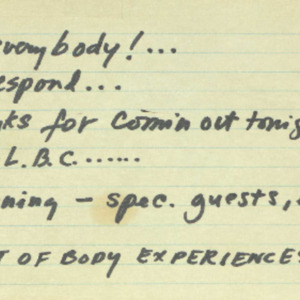 everybody!...
espond...
nks for comin out tonig
L.B.C.......
ning – spec. guests,
T OF BODY EXPERIENCE